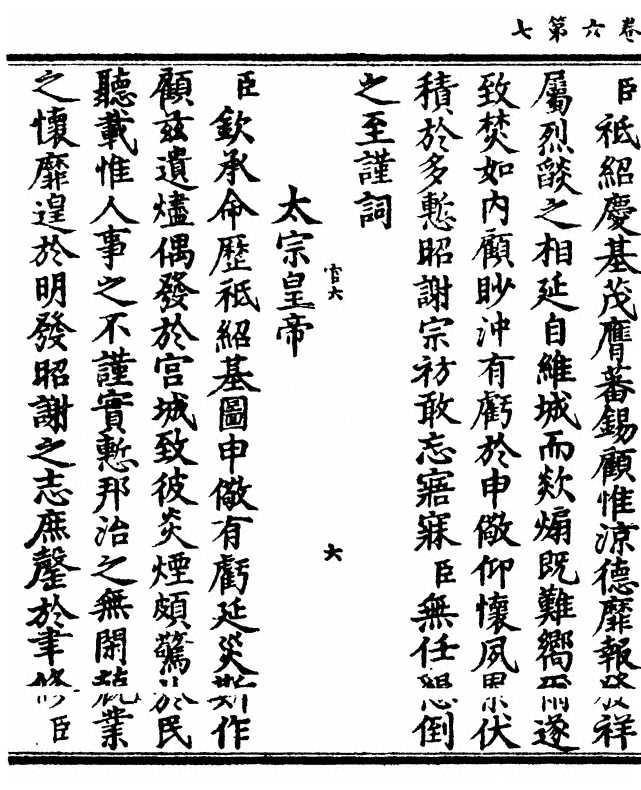 卷六第七
臣祗紹慶基茂膺蕃錫顧惟涼德靡報祥
屬烈燄之相延自維城而欻煽既難嚮邇遂
致焚如內顧眇沖有虧於申儆仰懷夙伏
積於多慙昭謝宗祊敢忘寤寐臣無任懇倒
之至謹詞
官六
六
太宗皇帝
臣欽承命歷祗紹基圖申儆有虧延災斯作
顧茲遺燼偶發於宮城致彼炎煙頗驚於民
聽載惟人事之不謹實慙邦治之無閑兢業
之懷靡遑於明發昭謝之志庶罄於聿修臣